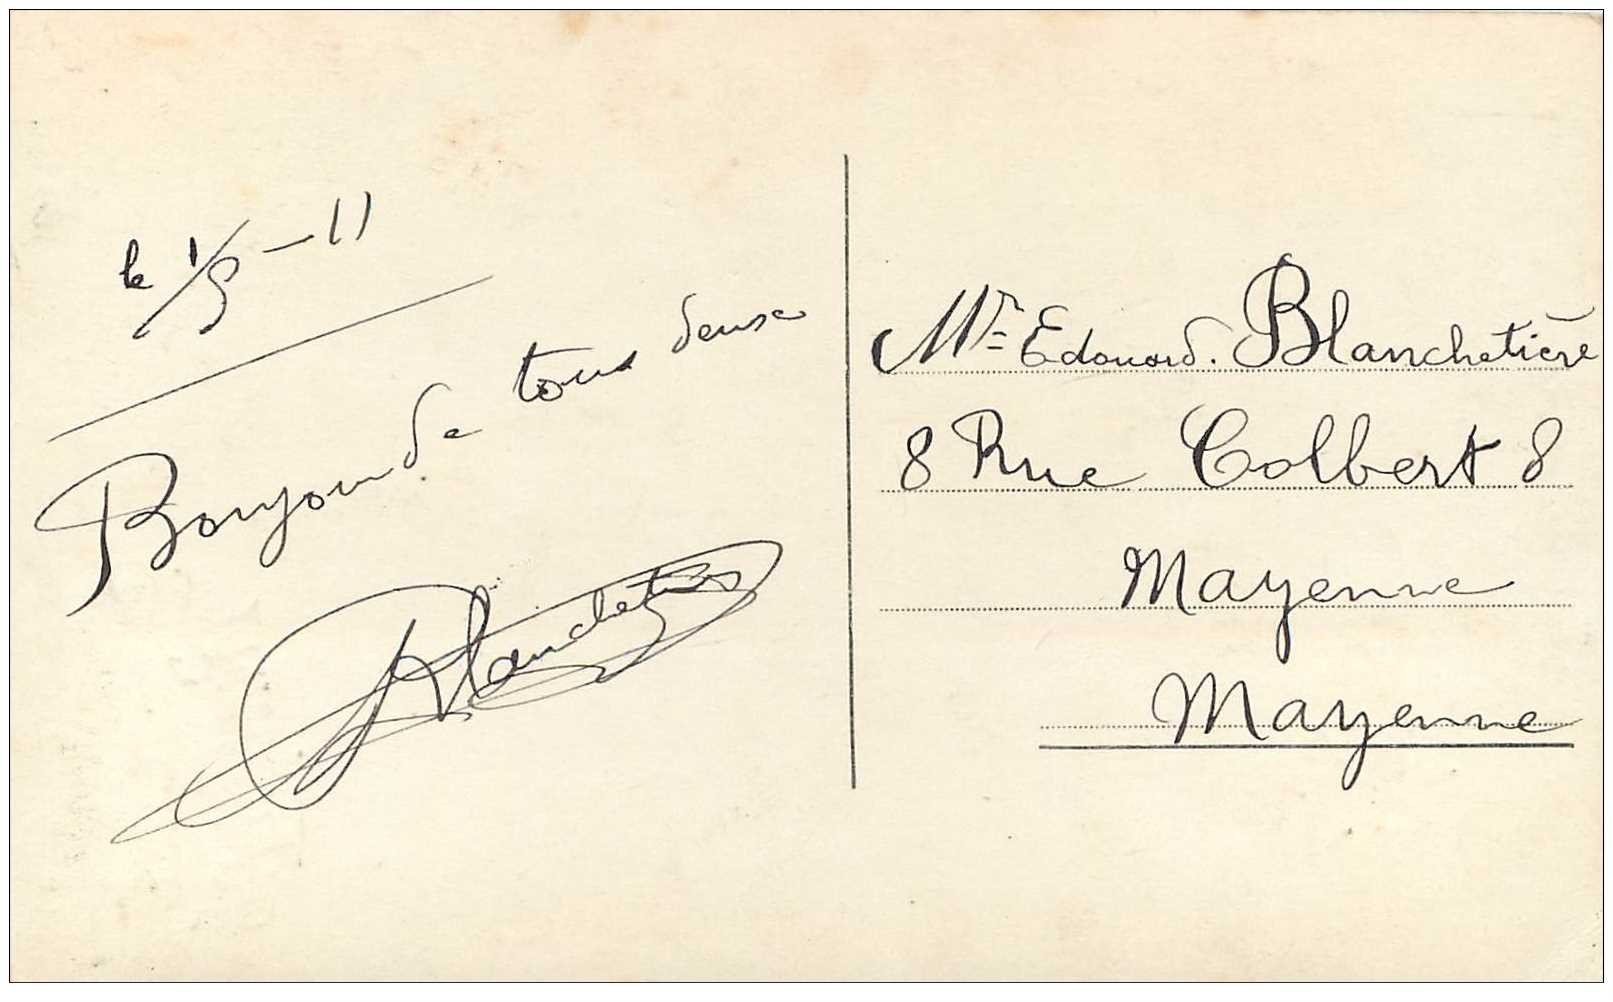 le 1/5 - 11
Bonjour de tous deux
Blanchetière
Mr Edouard. Blanchetière
8 Rue Colbert 8
Mayenne
Mayenne